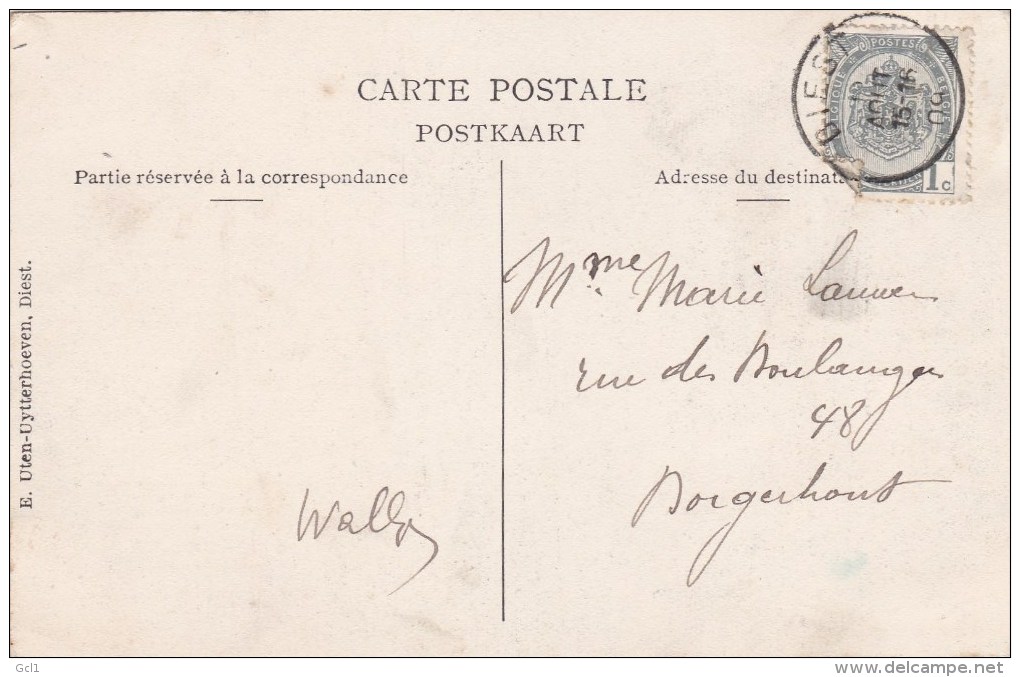 CARTE POSTALE
POSTKAART
Partie réservée à la correspondance
Adresse du destinata
DIEST
AOUT
15-16
09
POSTES
BELGIQUE
BELGIE
1c
Mme Marie Lauwers
rue des Boulanger
48
Borgerhout
E. Uten-Uytterhoeven, Diest.
Gcl1
www.delcampe.net